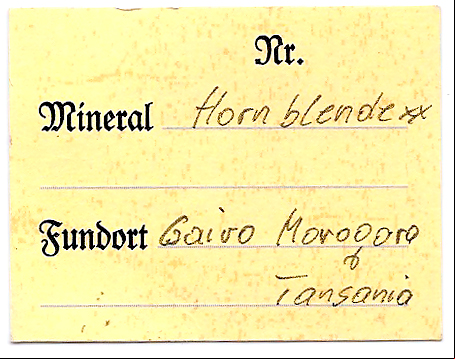 Nr.
Mineral Hornblende xx
Fundort Gairo Morogoro
Tansania